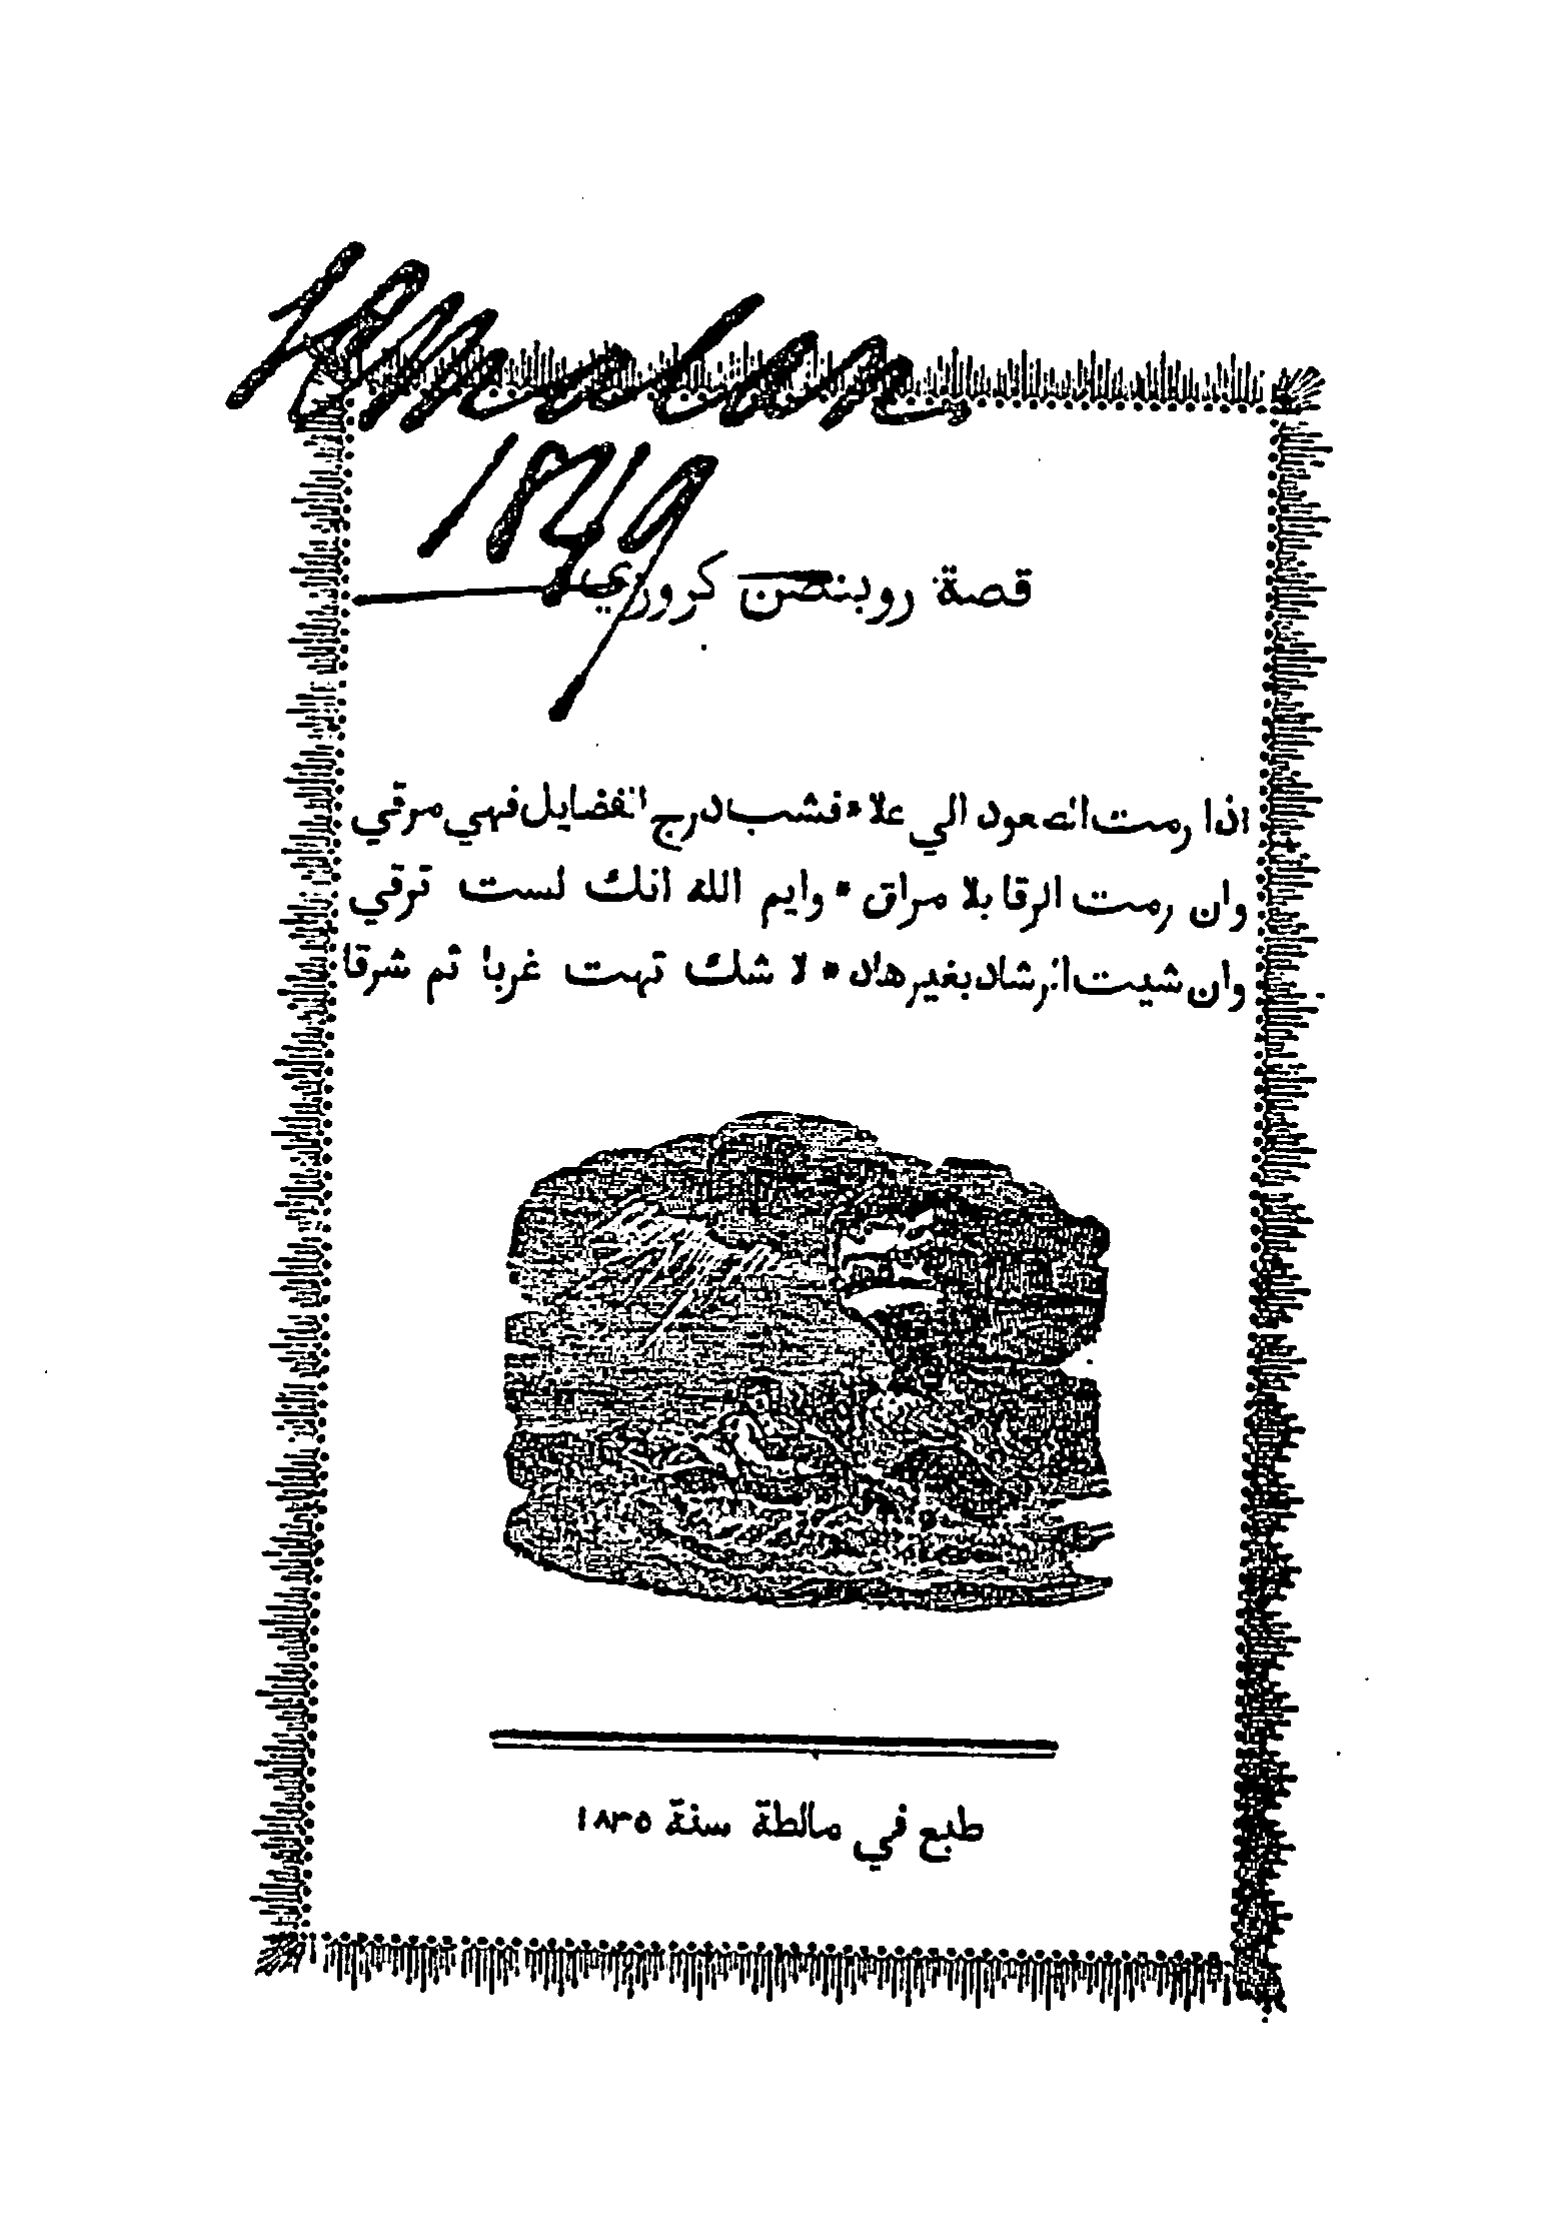 1849
قصة روبنصن كروزي
اذا رمت الصعود الي علاء * فشب درج الفضايل فهي مرقي
وان رمت الرقا بلا مراق * وايم الله انك لست ترقي
وان شيت الرشاد بغير هاد * لا شك تهت غربا ثم شرقا
طبع في مالطة سنة ١٨٣٥